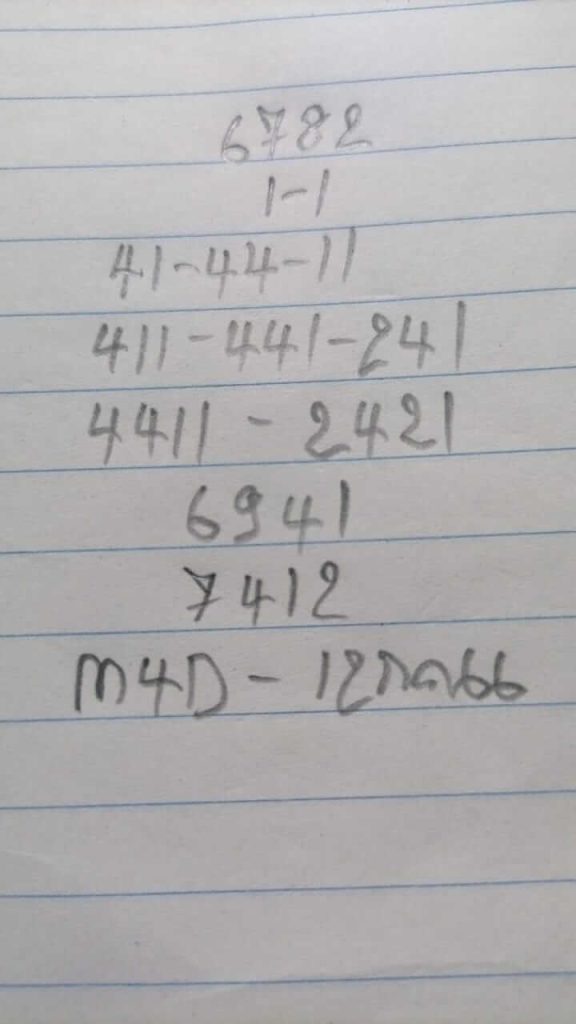 6782
1-1
41-44-11
411-441-241
4411 - 2421
6941
7412
M4D - 12กค66